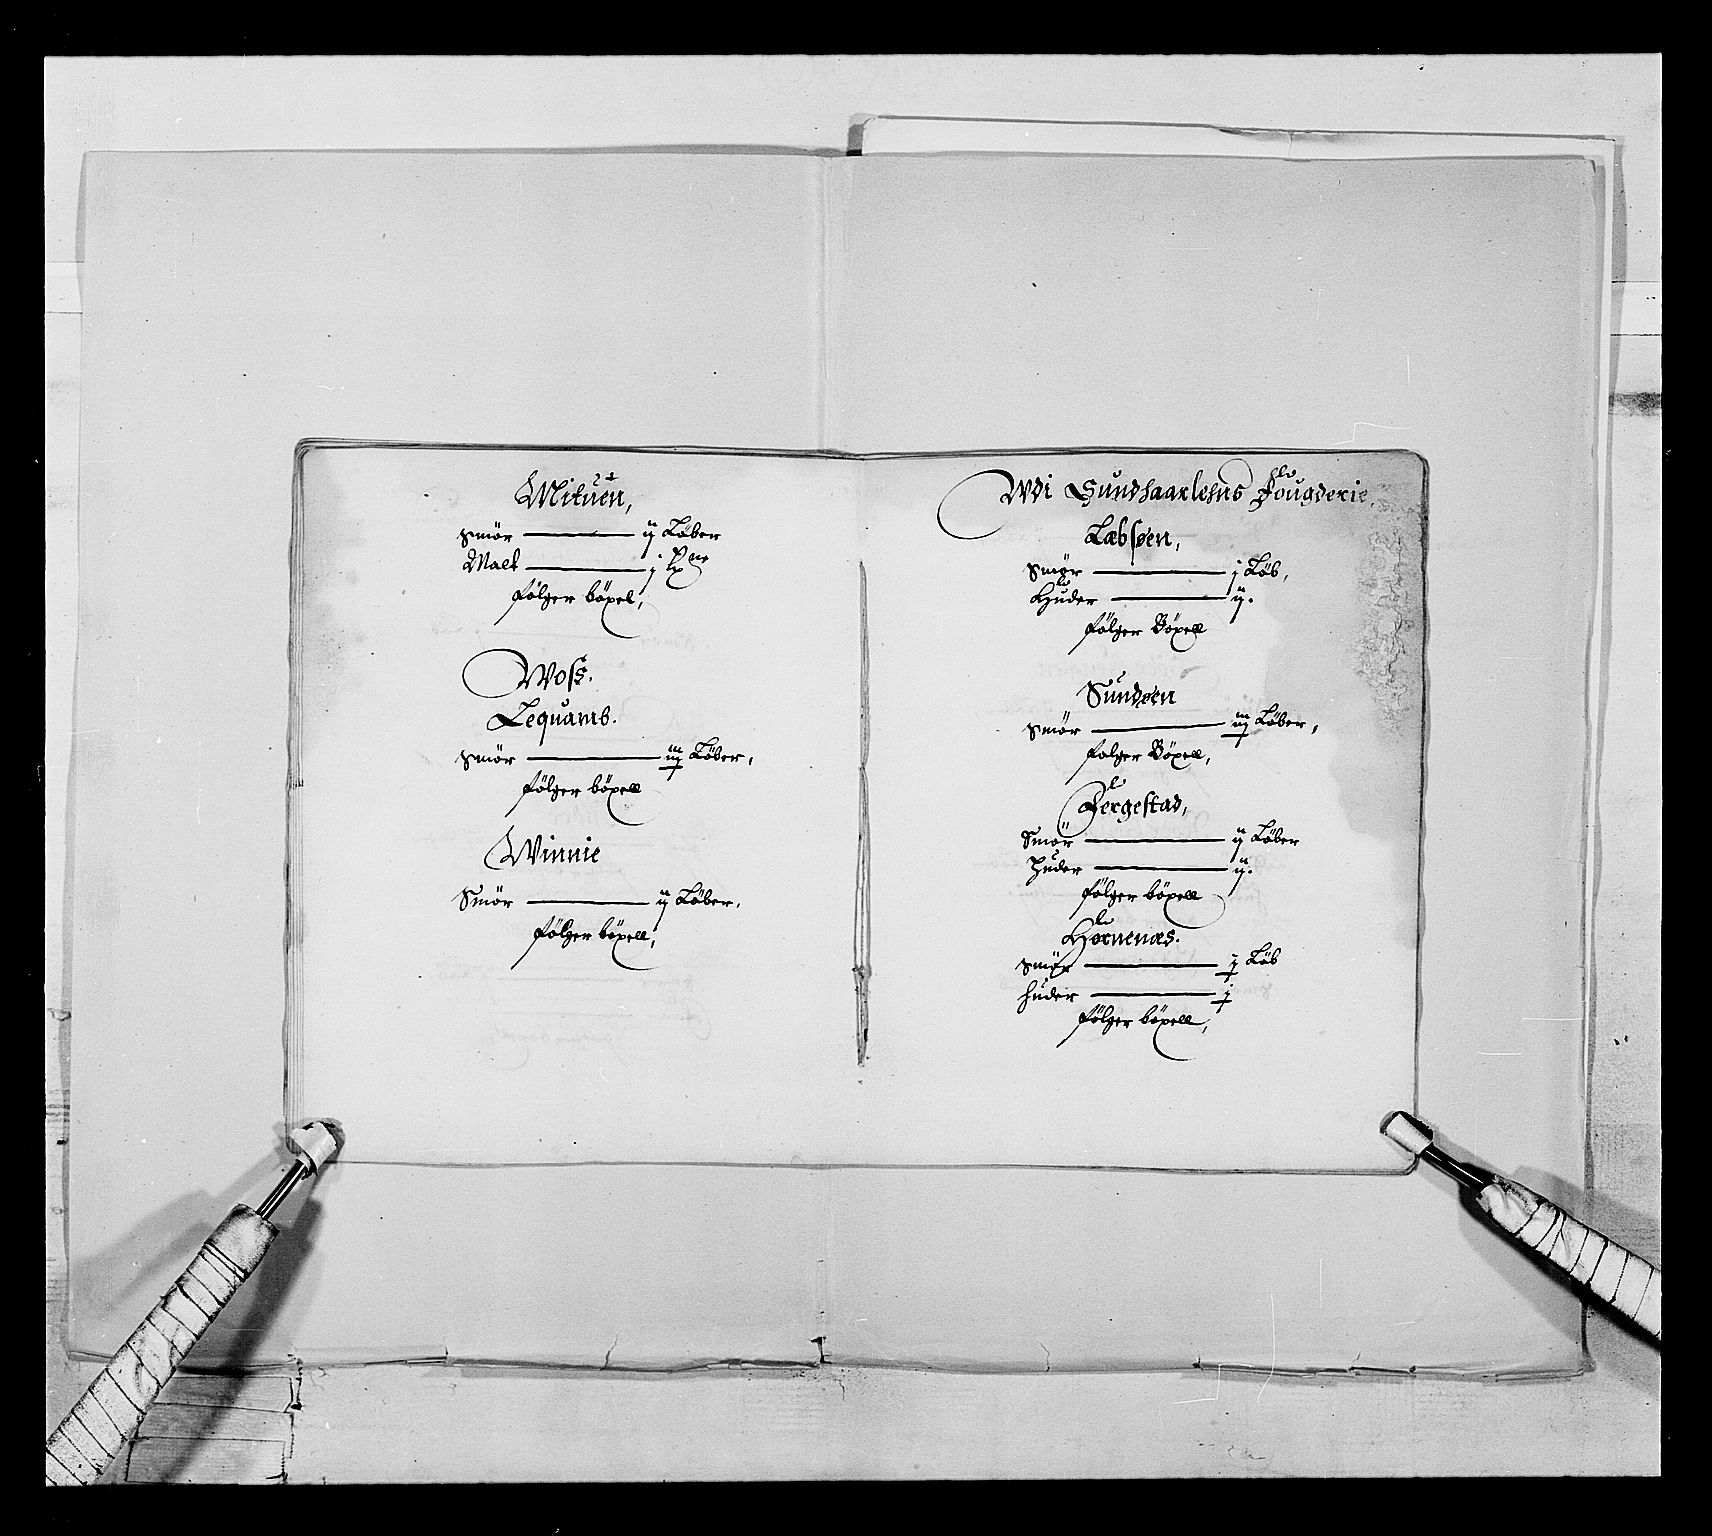 Mituen,
Smör ——— ij Löber
Malt ——— j
følger böxel,
Woss.
Lequamb.
Smör ——— iiij Löber,
følger böxell
Winnie
Smör ——— ij Löber,
följger böxell,
Wdi Sundhaarlehns Fougderie,
Læbsøen,
Smör ——— j Løb,
Huder ——— ij.
følger Böxell
Sundøen
Smör ——— Löber,
følger Böxell,
Jergestad,
Smör ——— ij Löber
Huder ——— ij.
følger böxell
Hørnenæs.
Smör ——— Löb
Huder ———
følger böxell,